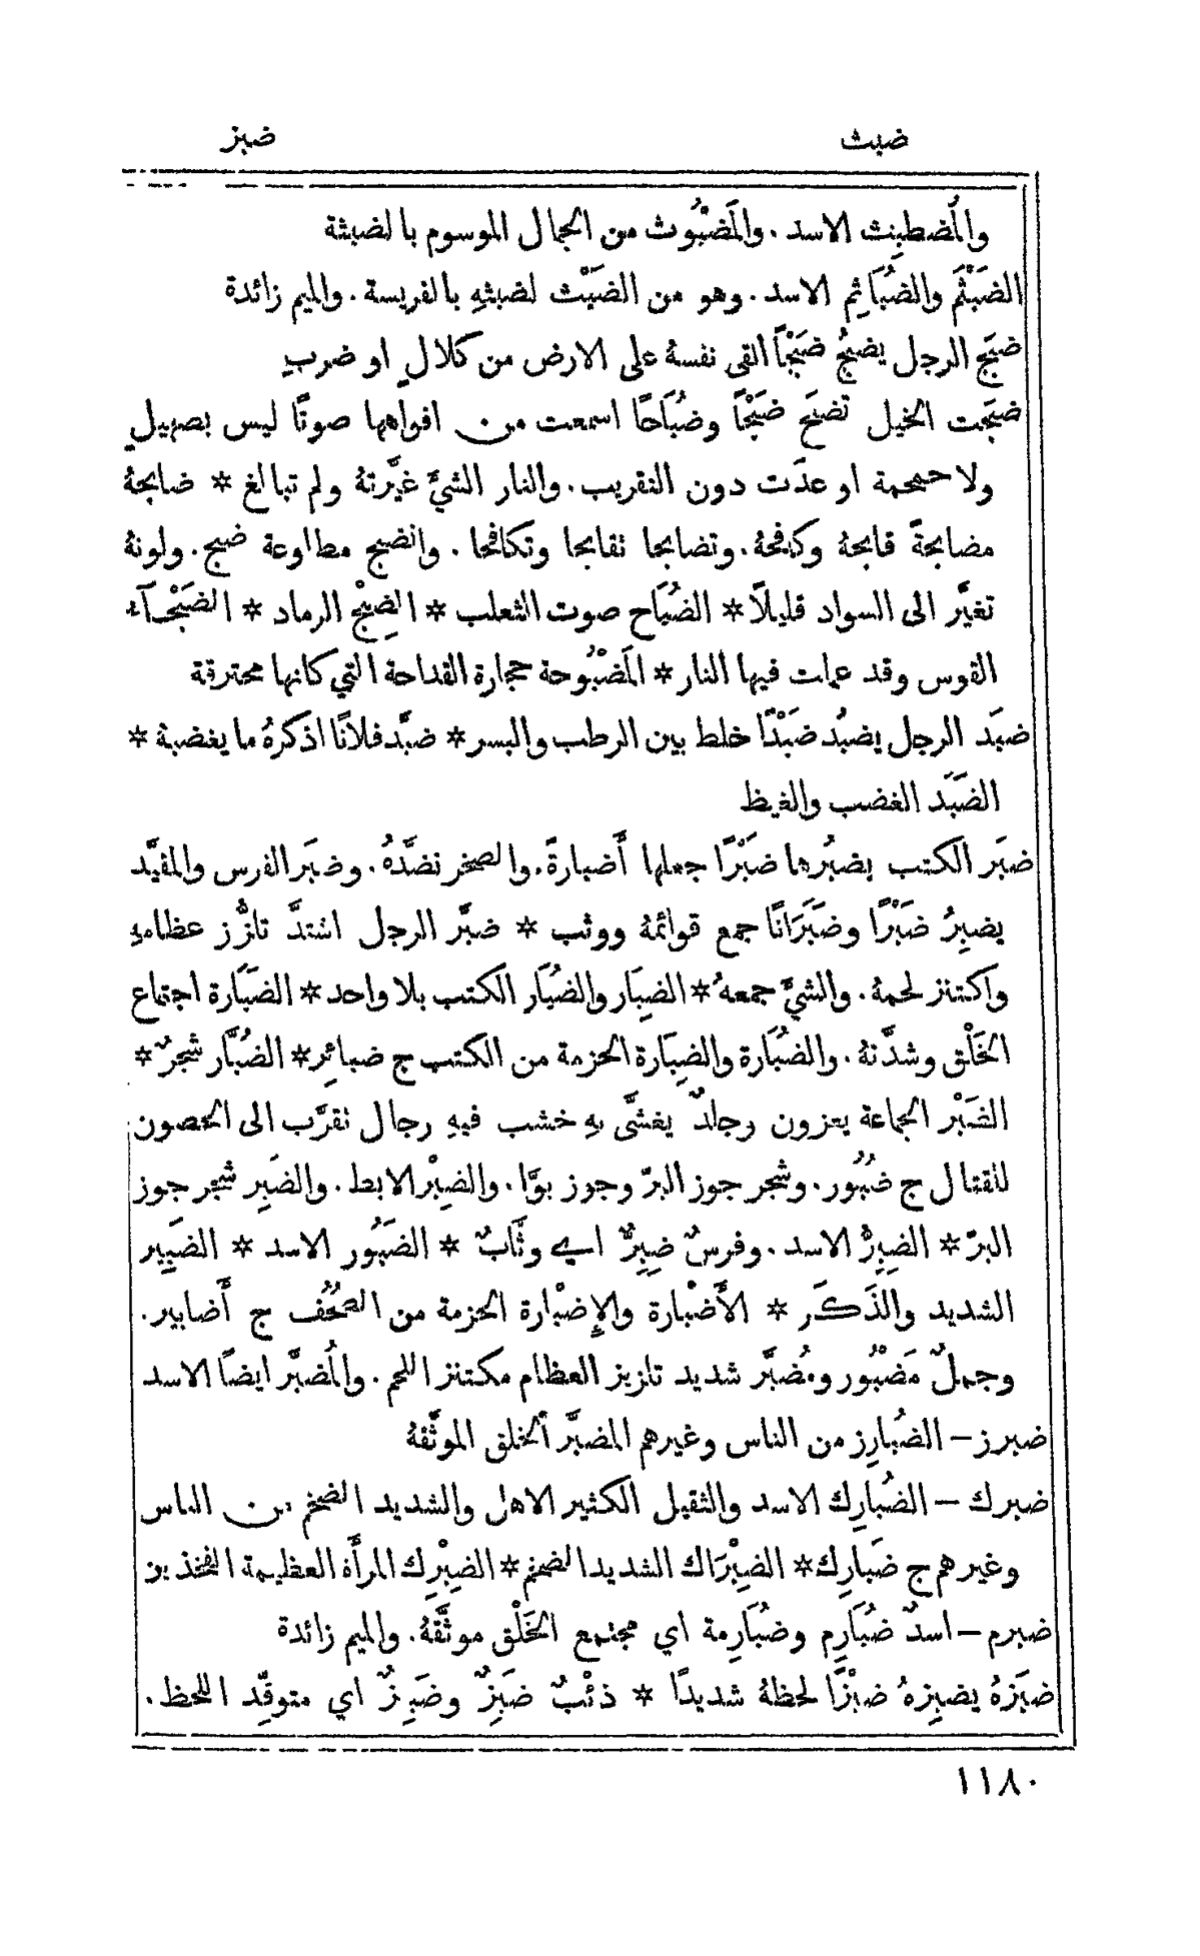 ضبث
ضبز
والمُضطبِث الاسد . والمَضْبُوث من الجمال الموسوم بالضبثة
الضَبْثَم والضُبَاثِم الاسد . وهو من الضَبْث لضبثهِ بالفريسة . والميم زائدة
ضبَج الرجل يضبِجُ ضَبْجًا القى نفسهُ على الارض من كلالٍ او ضربٍ
ضبَحت الخيل تضبَح ضَبْحًا وضُبَاحًا اسمعت من افواهها صوتًا ليس بصهيلٍ
ولا حمحمة او عدَت دون التقريب . والنار الشيَّ غيَّرتهُ ولم تبالغ * ضابحهُ
مضابحةً قابحهُ وكافحهُ . وتضابحا تقابحا وتكافحا . وانضبح مطاوعة ضبح . ولونهُ
تغيَّر الى السواد قليلًا * الضُبَاح صوت الثعلب * الضِبْح الرماد * الضَبْحآء
القوس وقد عملت فيها النار * المَضْبُوحة حجارة القداحة التي كانها محترقة
ضبَد الرجل يضبُد ضَبْدًا خلط بين الرطب والبسر * ضبَّد فلانًا اذكرهُ ما يغضبهُ *
الضَبَد الغضب والغيظ
ضبَر الكتب يضبُرها ضَبْرًا جعلها أَضبارةً . والصخر نضَّدهُ . وضبَر الفرس والمقيَّد
يضبِرُ ضَبْرًا وضَبَرَانًا جمع قوائمهُ ووثب * ضبَّر الرجل اشتدَّ تلزُّز عظامهِ
واكتنز لحمهُ . والشيَّ جمعهُ * الضِبَار والضُبَار الكتب بلا واحد * الضَبَارة اجتماع
الخَلْق وشدَّتهُ . والضُبَارة والضِبَارة الحزمة من الكتب ج ضبائِر * الضُبَّار شجرٌ *
الضَبْر الجماعة يغزون وجلدٌ يغشَّى بهِ خشب فيهِ رجال تقرَّب الى الحصون
للقتال ج ضُبُور . وشجر جوز البرّ وجوز بوَّا . والضِبْر الابط . والضَبِر شجر جوز
البرّ * الضِبِرُّ الاسد . وفرسٌ ضِبِرٌّ اي وثَّابٌ * الضَبُور الاسد * الضَبِير
الشديد والذَكَر * الأَضْبارة والإِضْبارة الحزمة من الصُحُف ج أَضابير .
وجملٌ مَضْبُور ومُضبَّر شديد تلزيز العظام مكتنز اللحم . والمُضبَّر ايضًا الاسد
ضبرز – الضُبارِز من الناس وغيرهم المضبَّر الخلق الموثَّقهُ
ضبرك – الضُبارِك الاسد والثقيل الكثير الاهل والشديد الضخم من الناس
وغيرهم ج ضَبارِك * الضِبْرَاك الشديد الضخم * الضِبْرِك المرأَة العظيمة الفخذين
ضبرم – اسدٌ ضُبَارِم وضُبَارِمة اي مجتمع الخَلْق موثَّقهُ . والميم زائدة
ضبَزهُ يضبِزهُ ضبْزًا لحظهُ شديدًا * ذئبٌ ضَبِزٌ وضَبِزٌ اي متوقِّد اللحظ .
١١٨٠